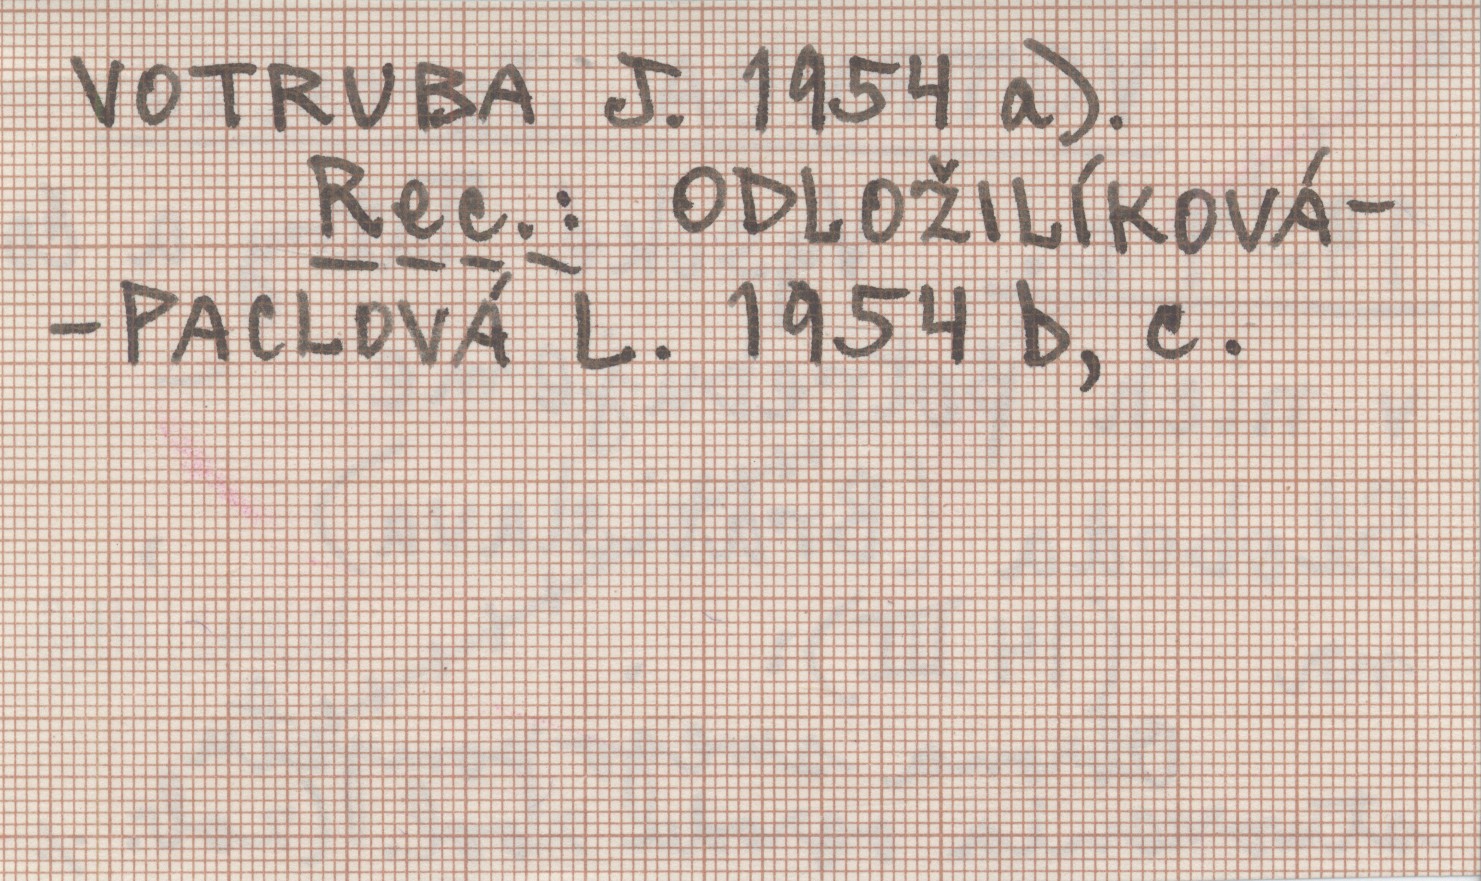 VOTRUBA J. 1954 a).
Rec.: ODLOŽILÍKOVÁ-
-PACLOVÁ L. 1954 b, c.